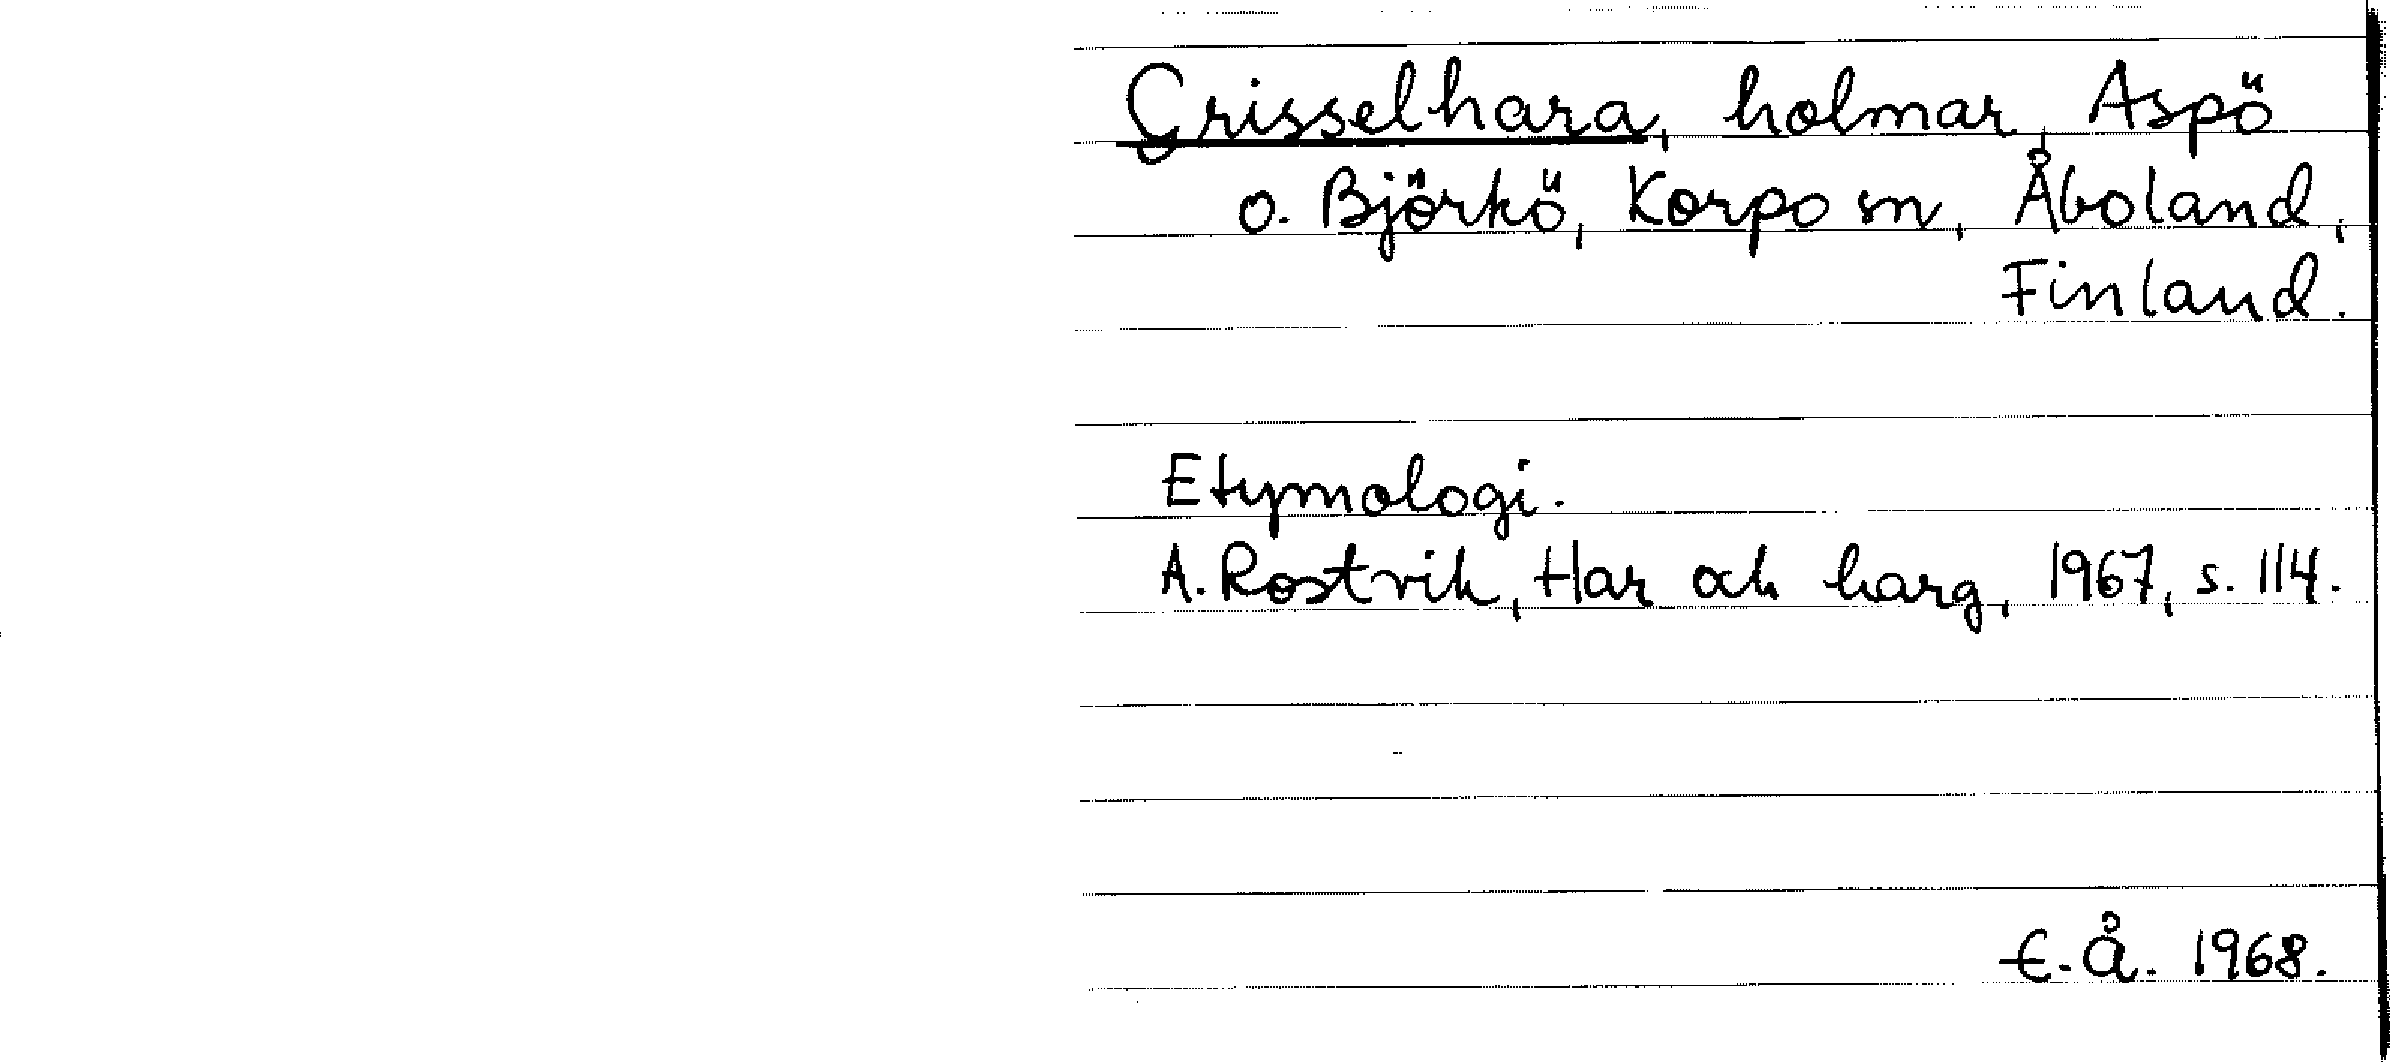 Grisselhara, holmar, Aspö
o. Björkö, Korpo sn, Åboland,
Finland.
Etymologi.
A. Rostvik, Har och harg, 1967, s. 114.
E. Å. 1968.